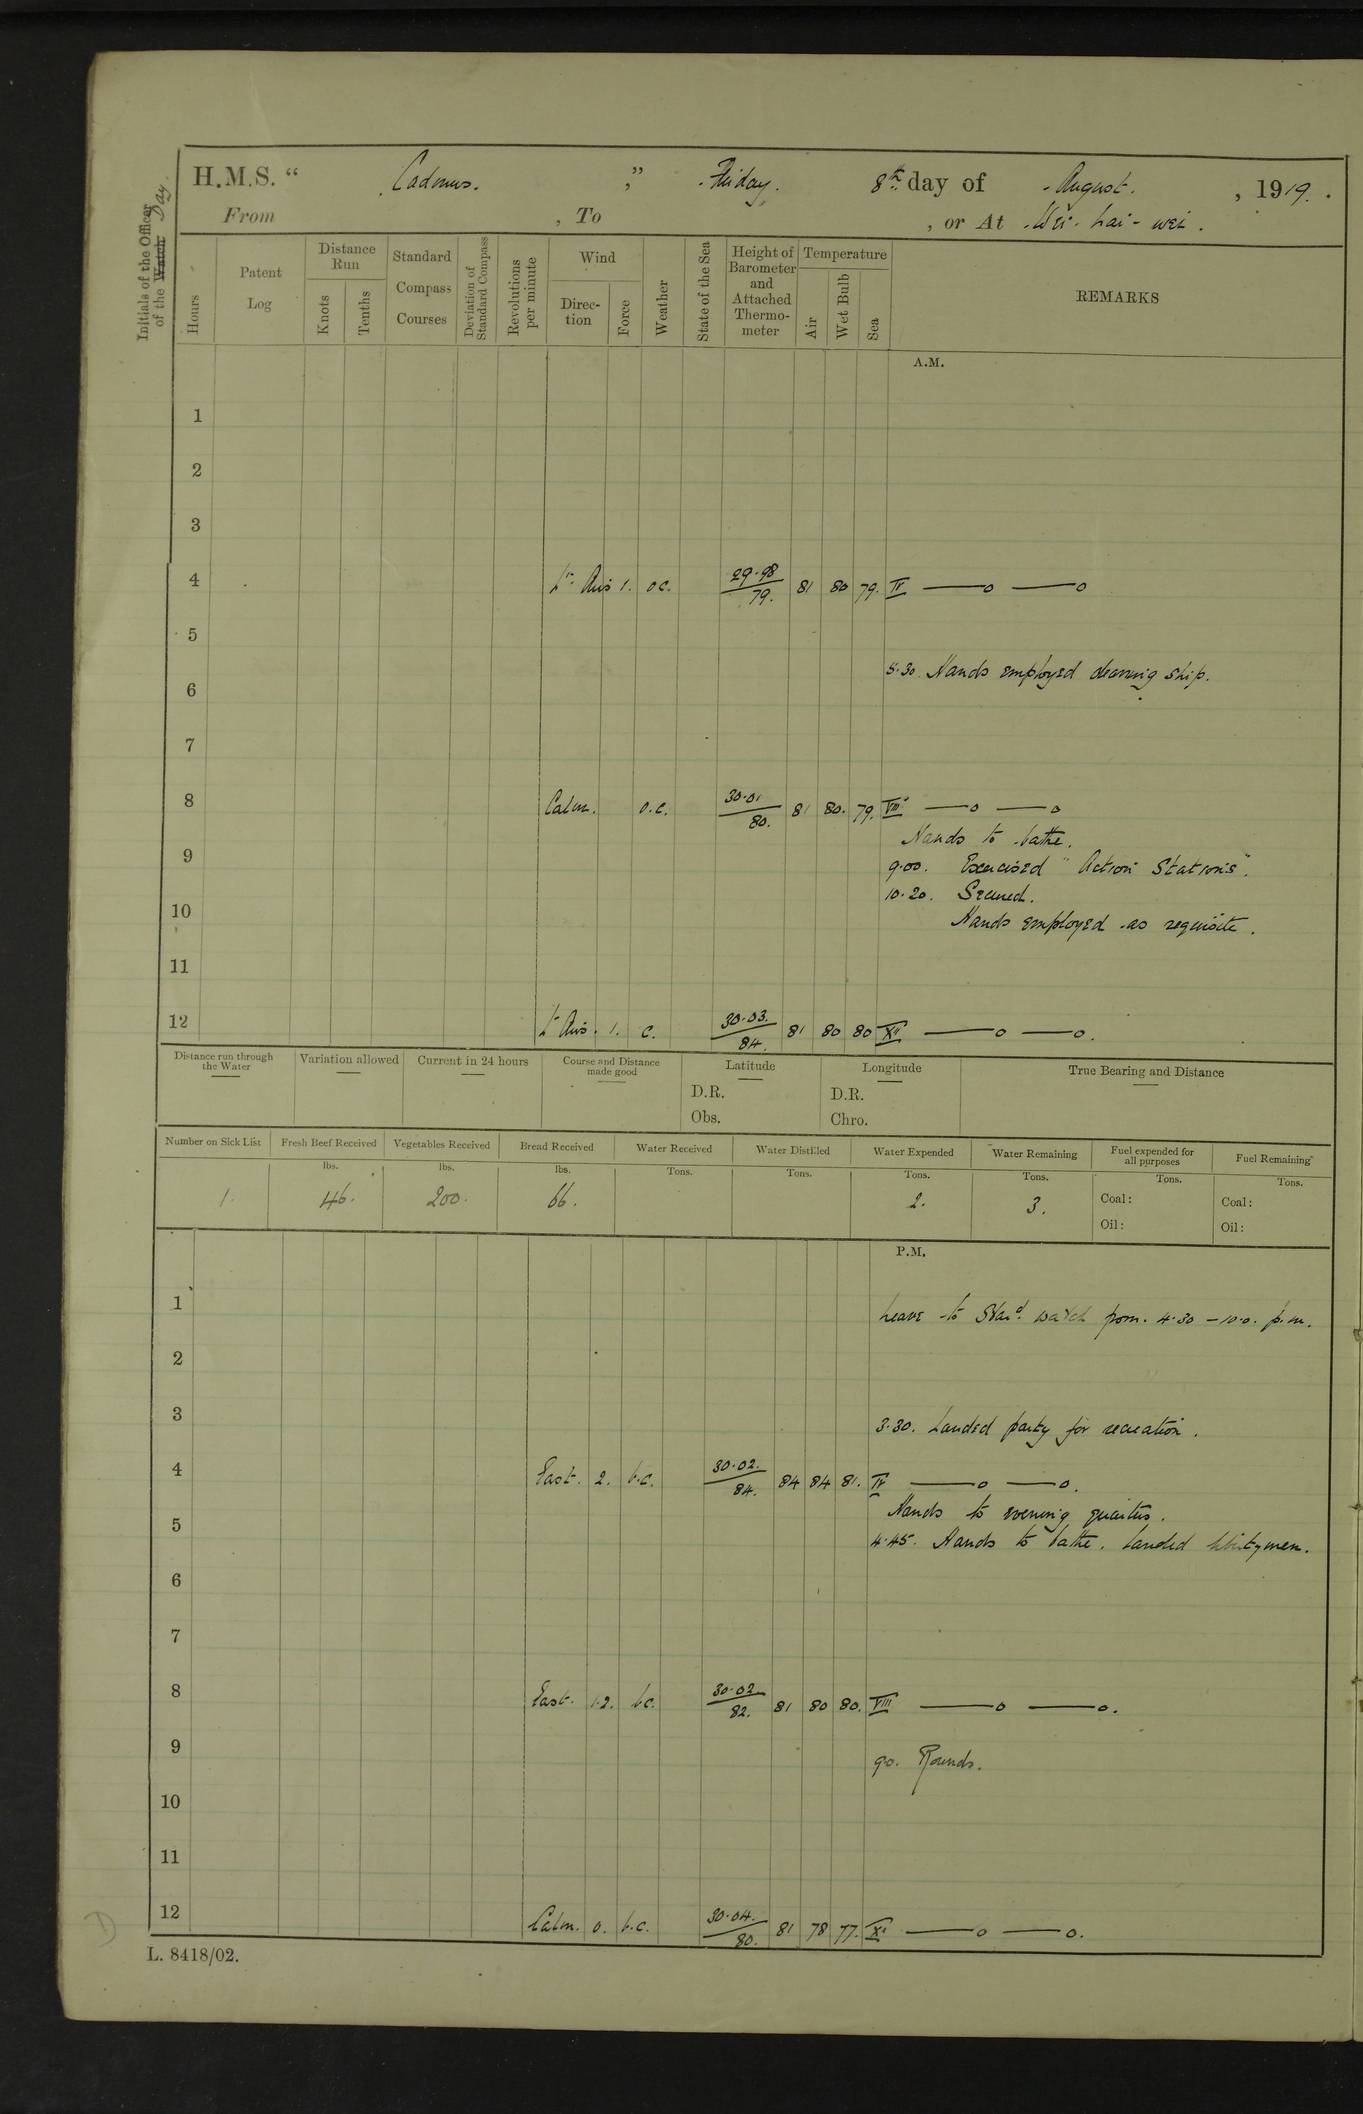 H.M.S. “ Cadmus. ” Friday. 8th day of August. , 1919.
From , To , or At Wei-hai-wei.
Initials of the Officer of the Watch Day.
Hours
Patent Log
Distance Run
Knots
Tenths
Standard Compass Courses
Deviation of Standard Compass
Revolutions per minute
Wind
Direc- tion
Force
Weather
State of the Sea
Height of Barometer and Attached Thermo- meter
Temperature
Air
Wet Bulb
Sea
REMARKS
A.M.
1
2
3
4 Lt. Airs 1. o.c. 29.98 79. 81 80 79. IV —o —o
5
5.30. Hands employed cleaning ship.
6
7
8 Calm. o.c. 30.01 80. 81 80. 79. VIII —o —o
Hands to bathe.
9
9.00. Exercised “Action Stations”.
10.20. Secured.
10
Hands employed as requisite.
11
12 Lt Airs. 1. c. 30.03. 84. 81 80 80 XII —o —o.
Distance run through the Water
Variation allowed
Current in 24 hours
Course and Distance made good
Latitude
D.R.
Obs.
Longitude
D.R.
Chro.
True Bearing and Distance
Number on Sick List
Fresh Beef Received
Vegetables Received
Bread Received
Water Received
Water Distilled
Water Expended
Water Remaining
Fuel expended for all purposes
Fuel Remaining
lbs. lbs. lbs. Tons. Tons. Tons. Tons. Tons. Tons.
1. 46. 200. 66. 2. 3. Coal: Coal:
Oil: Oil:
P.M.
1
Leave to Stard. watch from. 4.30 – 10.0. p.m.
2
3
3.30. Landed party for recreation.
4 East. 2. b.c. 30.02. 84. 84 84 81. IV —o —o.
Hands to evening quarters.
5
4.45. Hands to bathe. Landed libertymen.
6
7
8 East. 1.2. b.c. 30.02 82. 81 80 80. VIII —o —o.
9
9.0. Rounds.
10
11
12 Calm. 0. b.c. 30.04. 80. 81 78 77. XII —o —o.
L. 8418/02.